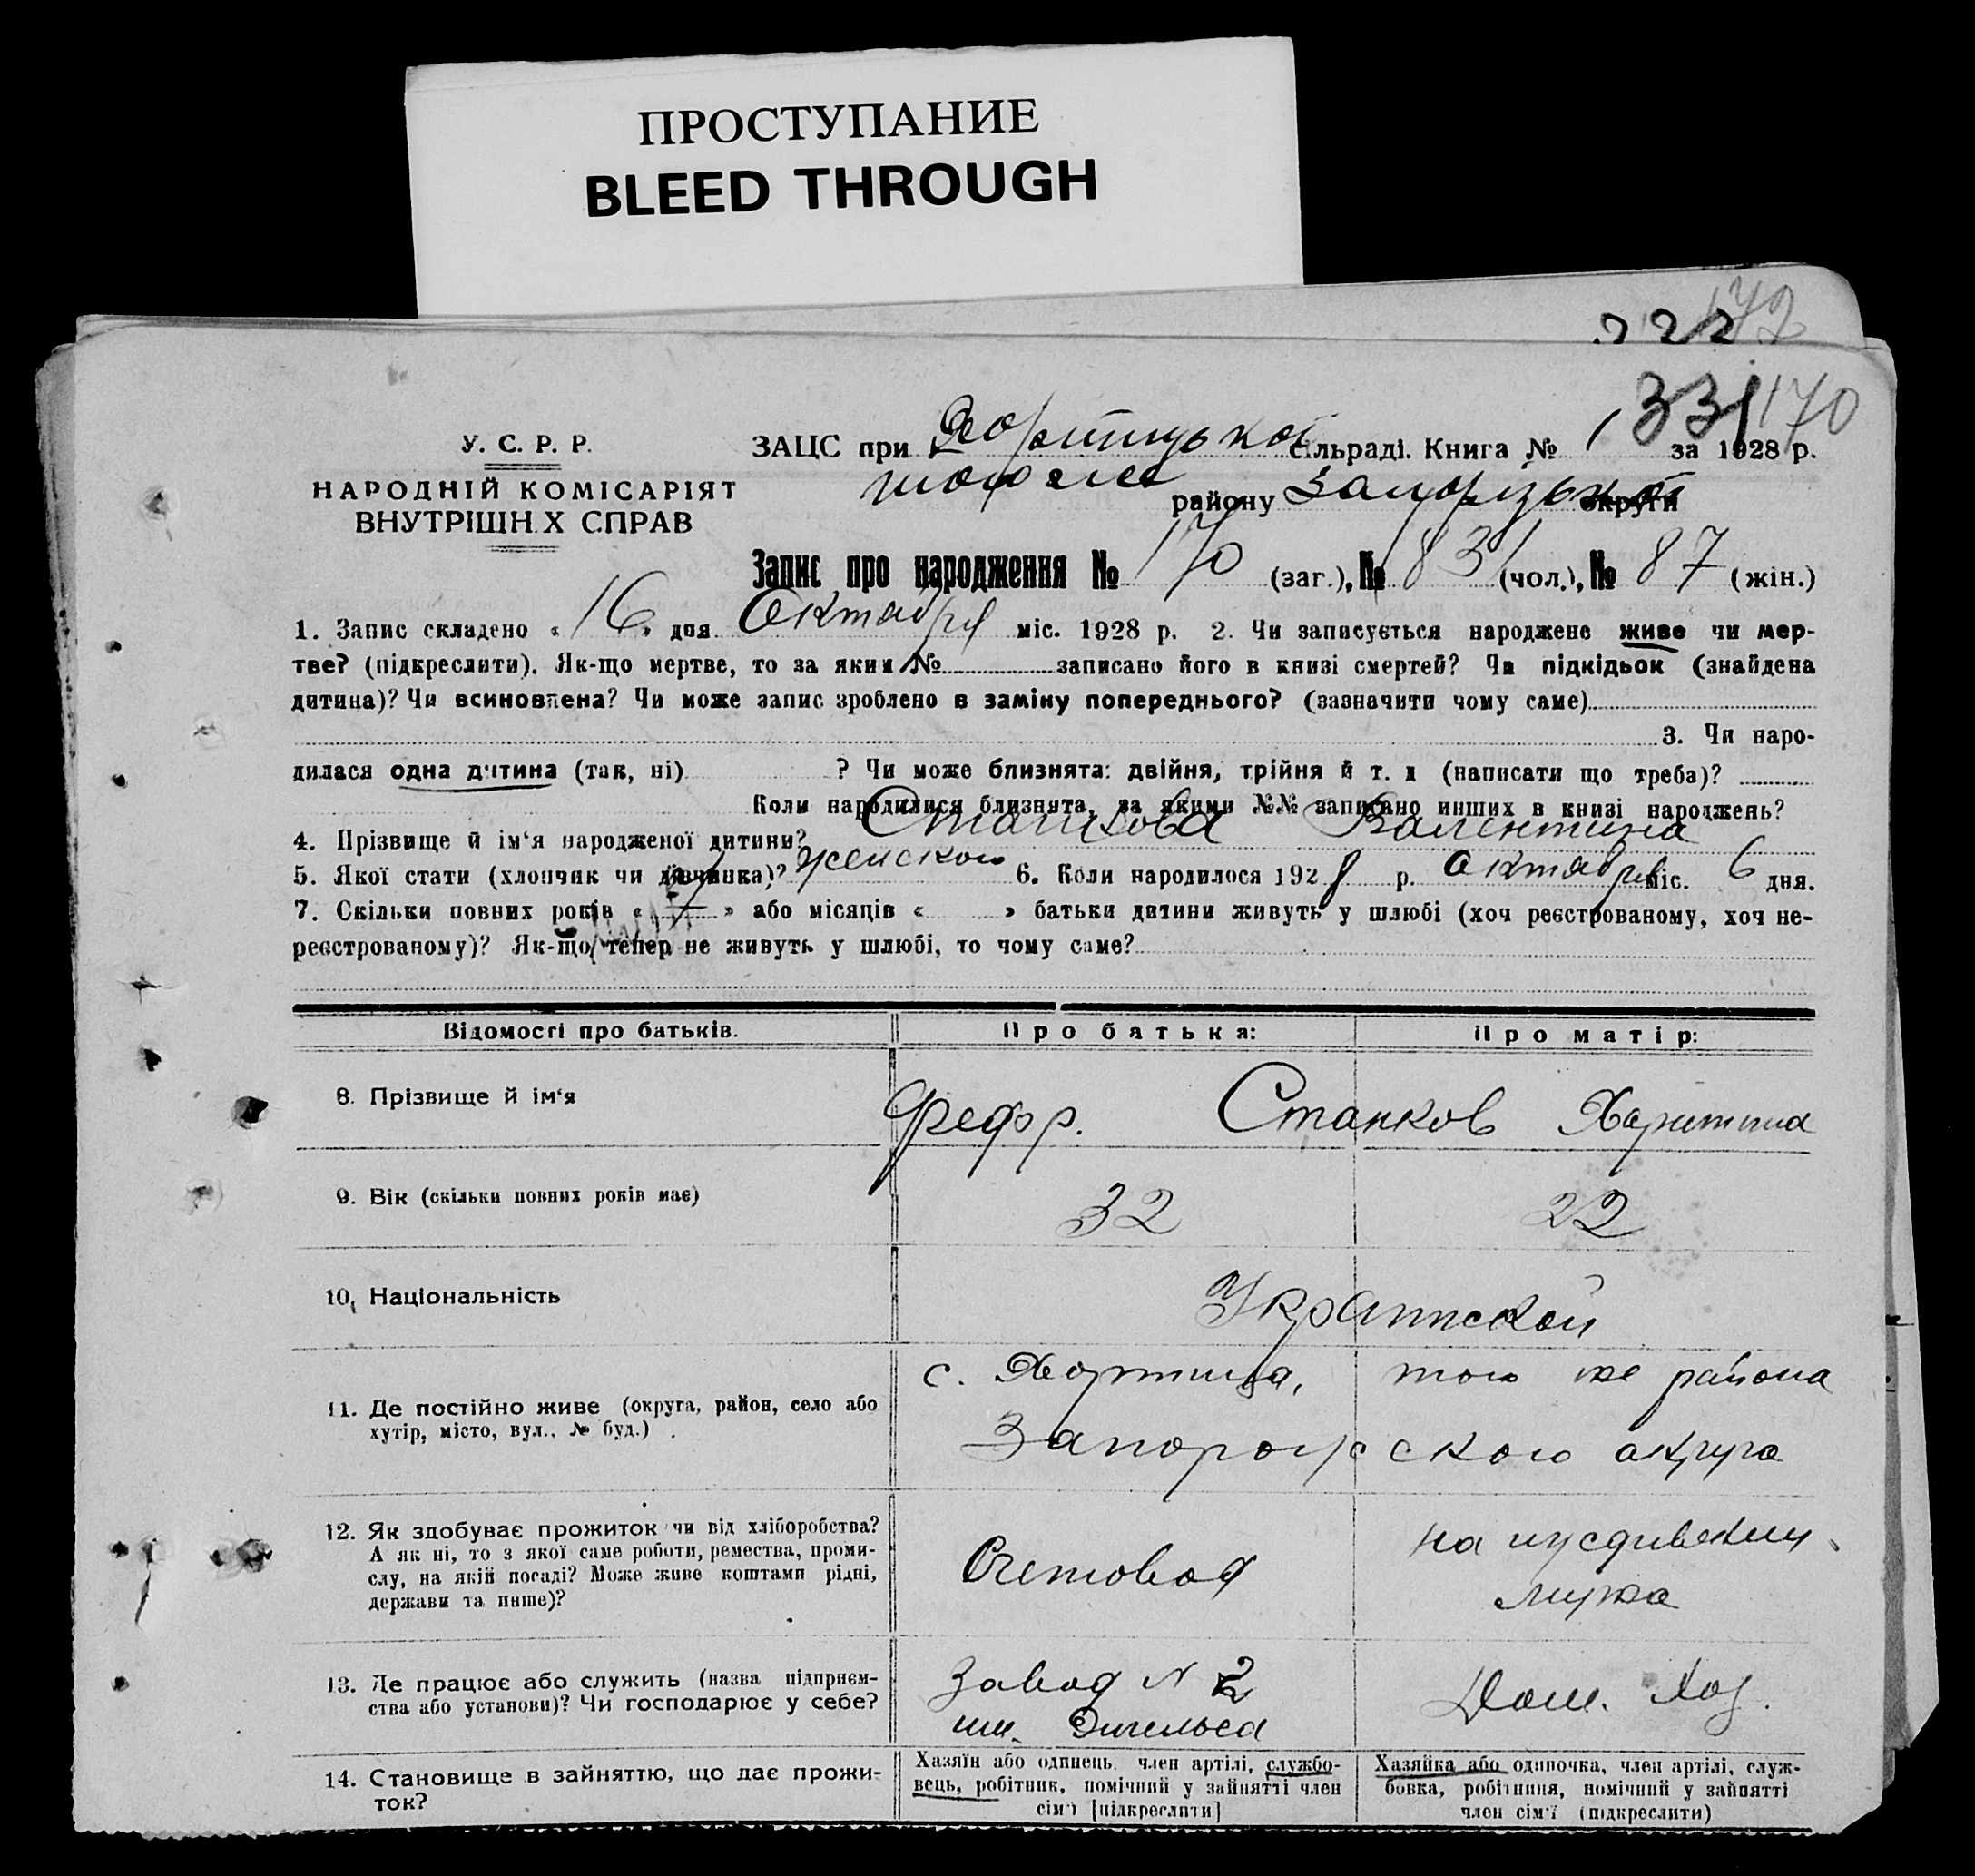 ПРОСТУПАНИЕ
BLEED THROUGH
172
331 170
У. С. Р. Р.
НАРОДНІЙ КОМІСАРІЯТ
ВНУТРІШН Х СПРАВ
ЗАЦС при Хортицькой сільраді. Книга № 1 за 1928 р.
того же району Запорізькой округи
Запис про народження № 170 (заг.), № 83 (чол.), № 87 (жін.)
1. Запис складено « 16 » дня Октября міс. 1928 р. 2. Чи записується народжене живе чи мер-
тве? (підкреслити). Як-що мертве, то за яким № записано його в книзі смертей? Чи підкідьок (знайдена
дитина)? Чи всиновлена? Чи може запис зроблено в заміну попереднього? (зазначити чому саме)
3. Чи наро-
дилася одна дитина (так, ні) ? Чи може близнята: двійня, трійня й т. д (написати що треба)?
Коли народилися близнята, за якими №№ записано инших в книзі народжень?
4. Прізвище й ім‘я народженої дитини? Станкова Валентина
5. Якої стати (хлопчик чи дівчинка)? женского 6. Коли народилося 1928 р. Октября міс. 6 дня.
7. Скільки повних років « » або місяців « » батьки дитини живуть у шлюбі (хоч реєстрованому, хоч не-
реєстрованому)? Як-що тепер не живуть у шлюбі, то чому саме?
Відомості про батьків.
Про батька:
Про матір:
8. Прізвище й ім‘я
Федор. Станков Харитина
9. Вік (скільки повних років має)
32
22
10. Національність
Украинской
11. Де постійно живе (округа, район, село або
хутір, місто, вул., № буд.)
с. Хортица, того же района
Запорожского округа
12. Як здобуває прожиток чи від хліборобства?
А як ні, то з якої саме роботи, ремества, проми-
слу, на якій посаді? Може живе коштами рідні,
держави та инше)?
Счетовод
на иждивении
мужа
13. Де працює або служить (назва підприєм-
ства або установи)? Чи господарює у себе?
Завод N 2
им. Энгельса
Дом. Хоз.
14. Становище в зайняттю, що дає прожи-
ток?
Хазяїн або одинець член артілі, службо-
вець, робітник, помічний у зайнятті член
сім‘ї [підкреслити]
Хазяйка або одиночка, член артілі, служ-
бовка, робітниця, помічний у зайнятті
член сім‘ї (підкреслити)